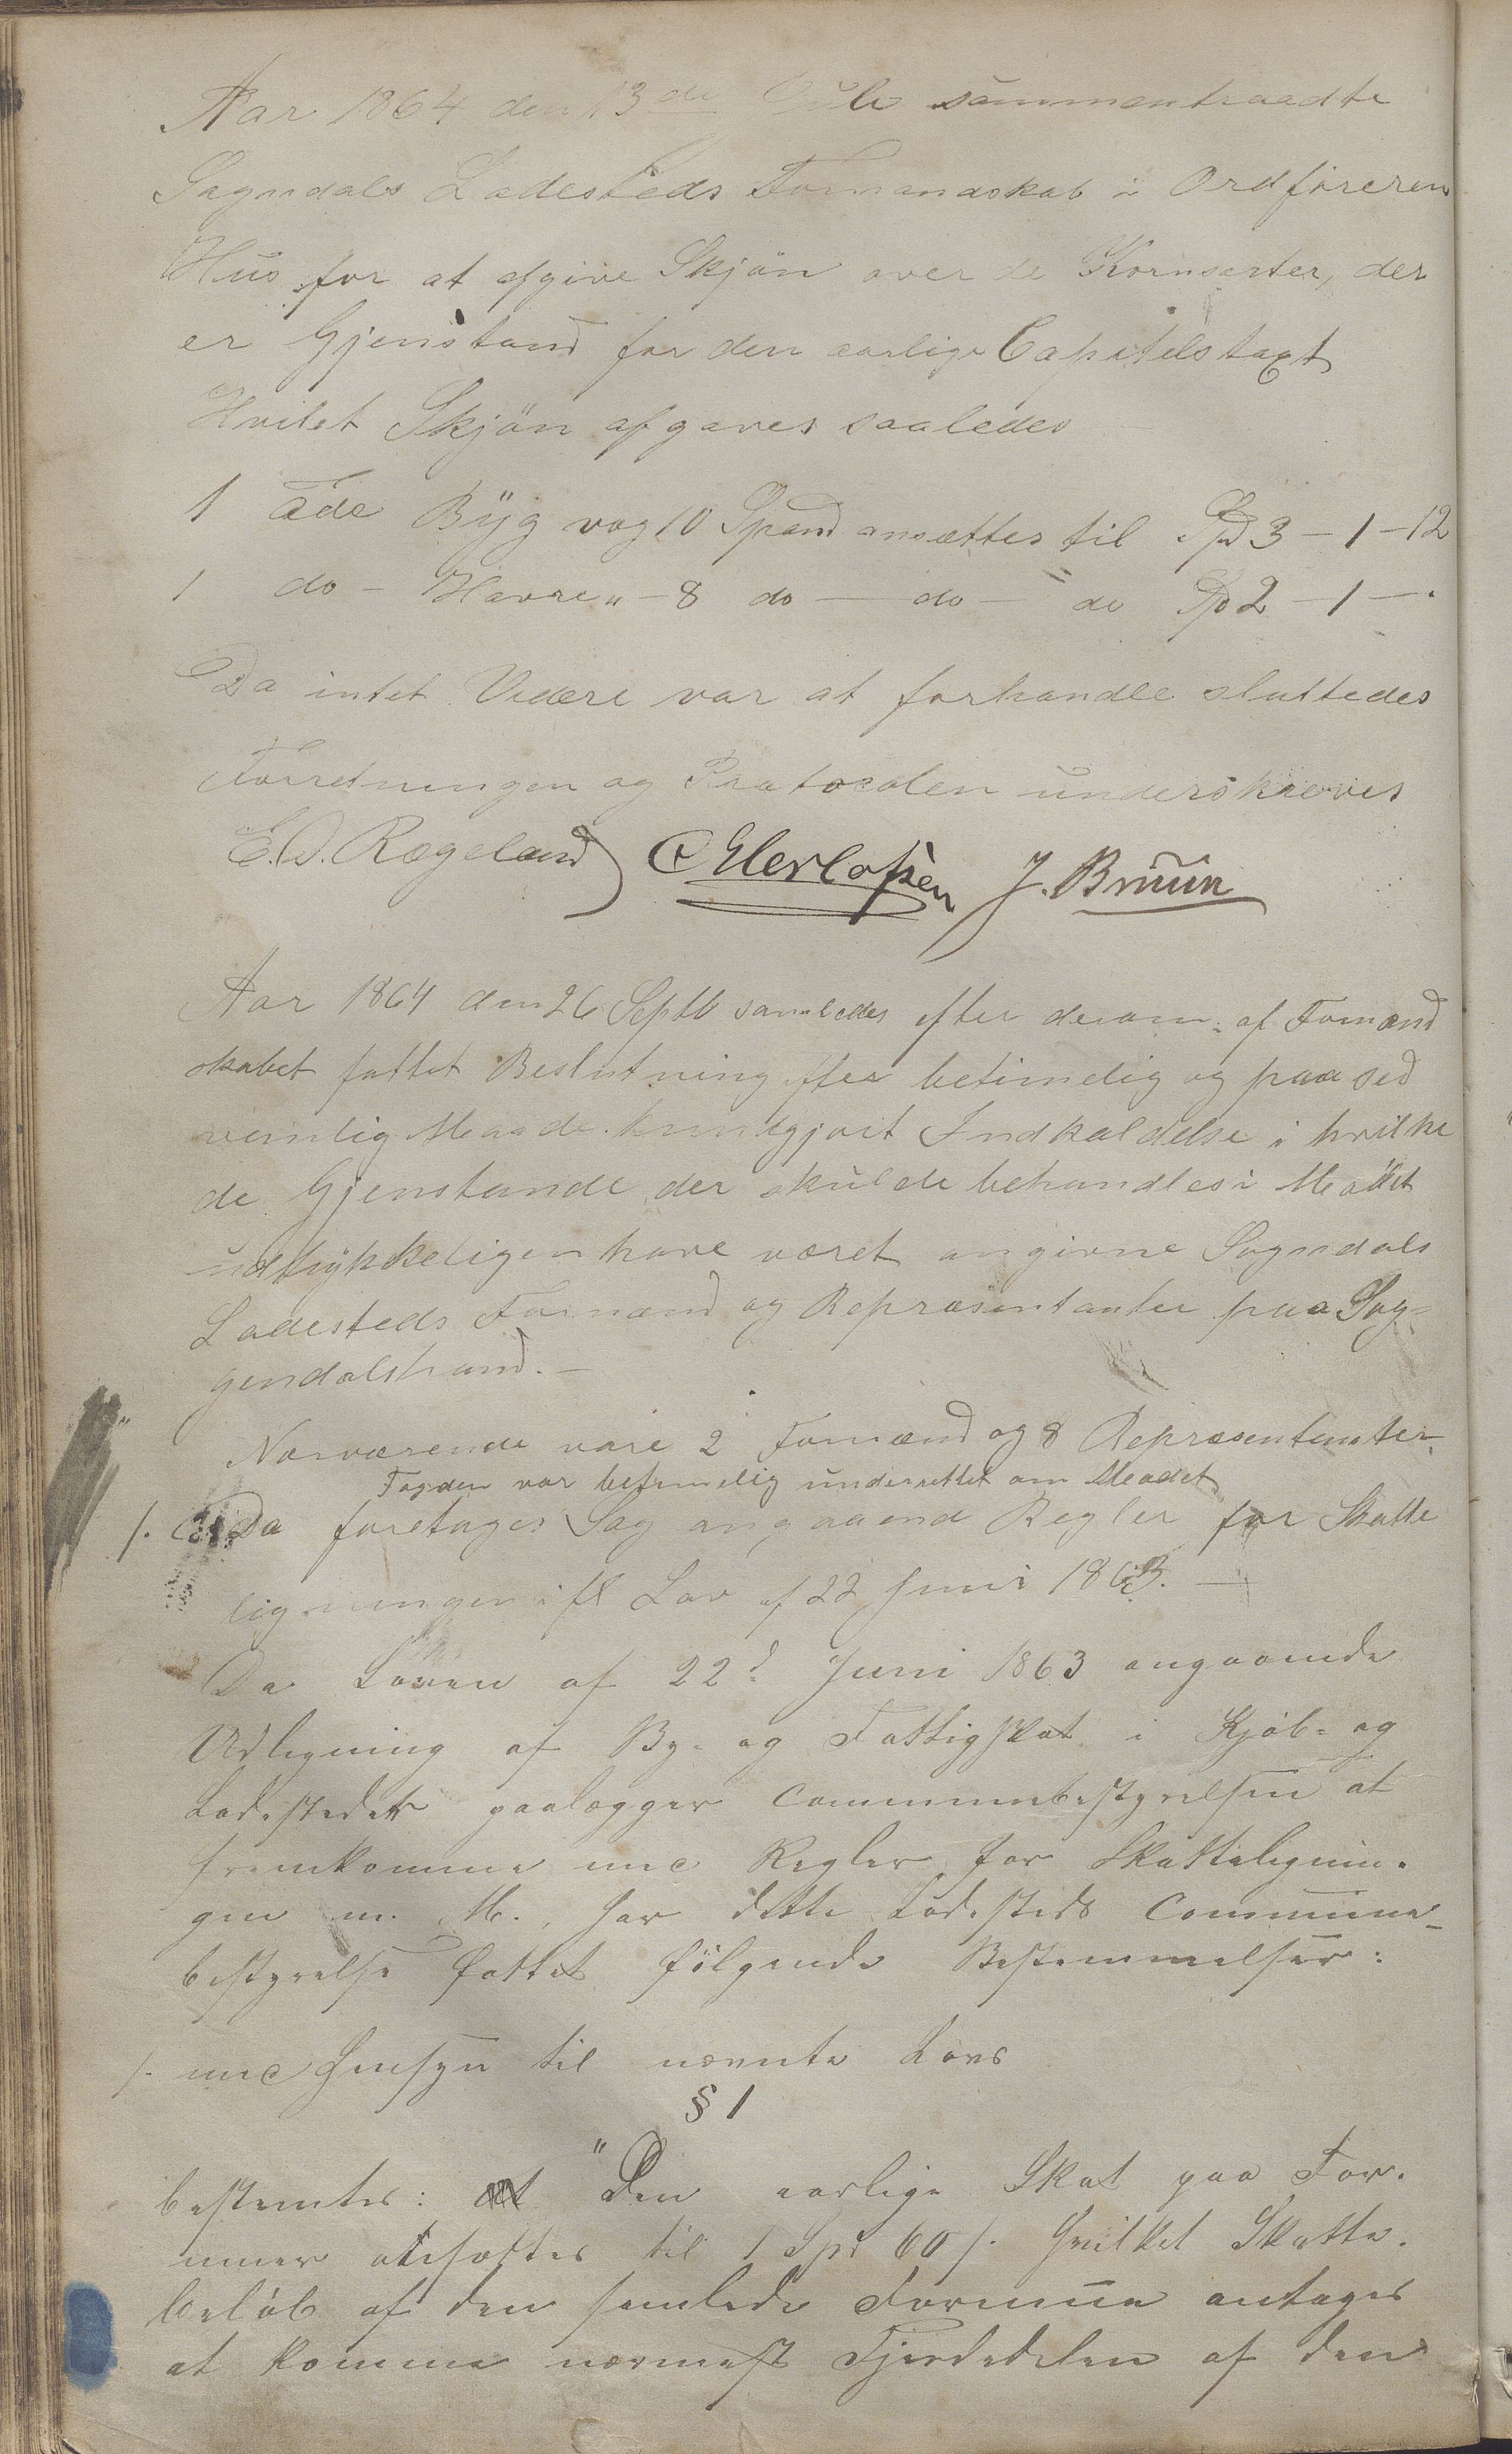 Aar 1864 den 13de Juli sammentraadte
Sogndals Ladesteds Formandskab i Ordføreren
Hus for at afgive Skjøn over de Kornsorter, der
er Gjenstand for den aarlige Capitelstaxt
Hvilet Skjøn afgaves saaledes
1 Tde Byg vog 10 Spand ansættes til Spd 3 - 1 - 12
1 do - Havre " - 8 do - do - do Spd 2 - 1 - "
Da intet Videre var at forhandle sluttedes
Forretningen og Protocolen underskreves
E. D. Rægeland C Elertassen J. Bruun
Aar 1864 den 26 Septb samledes efter derom af Formand
skabet fattet Beslutning efter betimelig og paa sed
vanlig Maade kundgjort Indkaldelse i hvilke
de Gjenstande der skulde behandles i Mødet
udtrykkeligen have været angivne Sogndals
Ladesteds Formænd og Repræsentanter paa Sog-
gendalstrand. -
Nærværende vare 2 Formænd og 8 Repræsentanter
Fogden var betimelig underrettet om Mødet
/. Da foretages Sag angaaend Regler for Skatte
ligningen ifl Lov af 22 Juni 1863. -
Da Loven af 22d Juni 1863 angaaende
Udligning af By- og Fattigskat i Kjøb- og
Ladesteder paalægger Communebestyrelsen at
fremkomme med Regler for Skattelignin-
gen m. M., har dette Ladesteds Commune-
bestyrelse fattet følgende Bestemmelser:
/. med Hensyn til nævnte Lovs
§ 1
bestemtes: "Den aarlige Skat paa For-
muer ansættes til 1 Spd 60 s. hvilket Skatte-
beløb af den samlede Formue antages
at komme nærmest Fjerdedelen af den